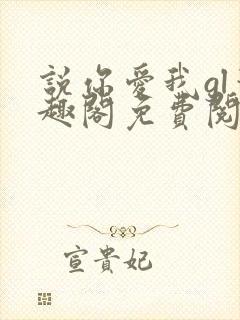 說你愛我gl
趣閣免費閱
宣貴妃